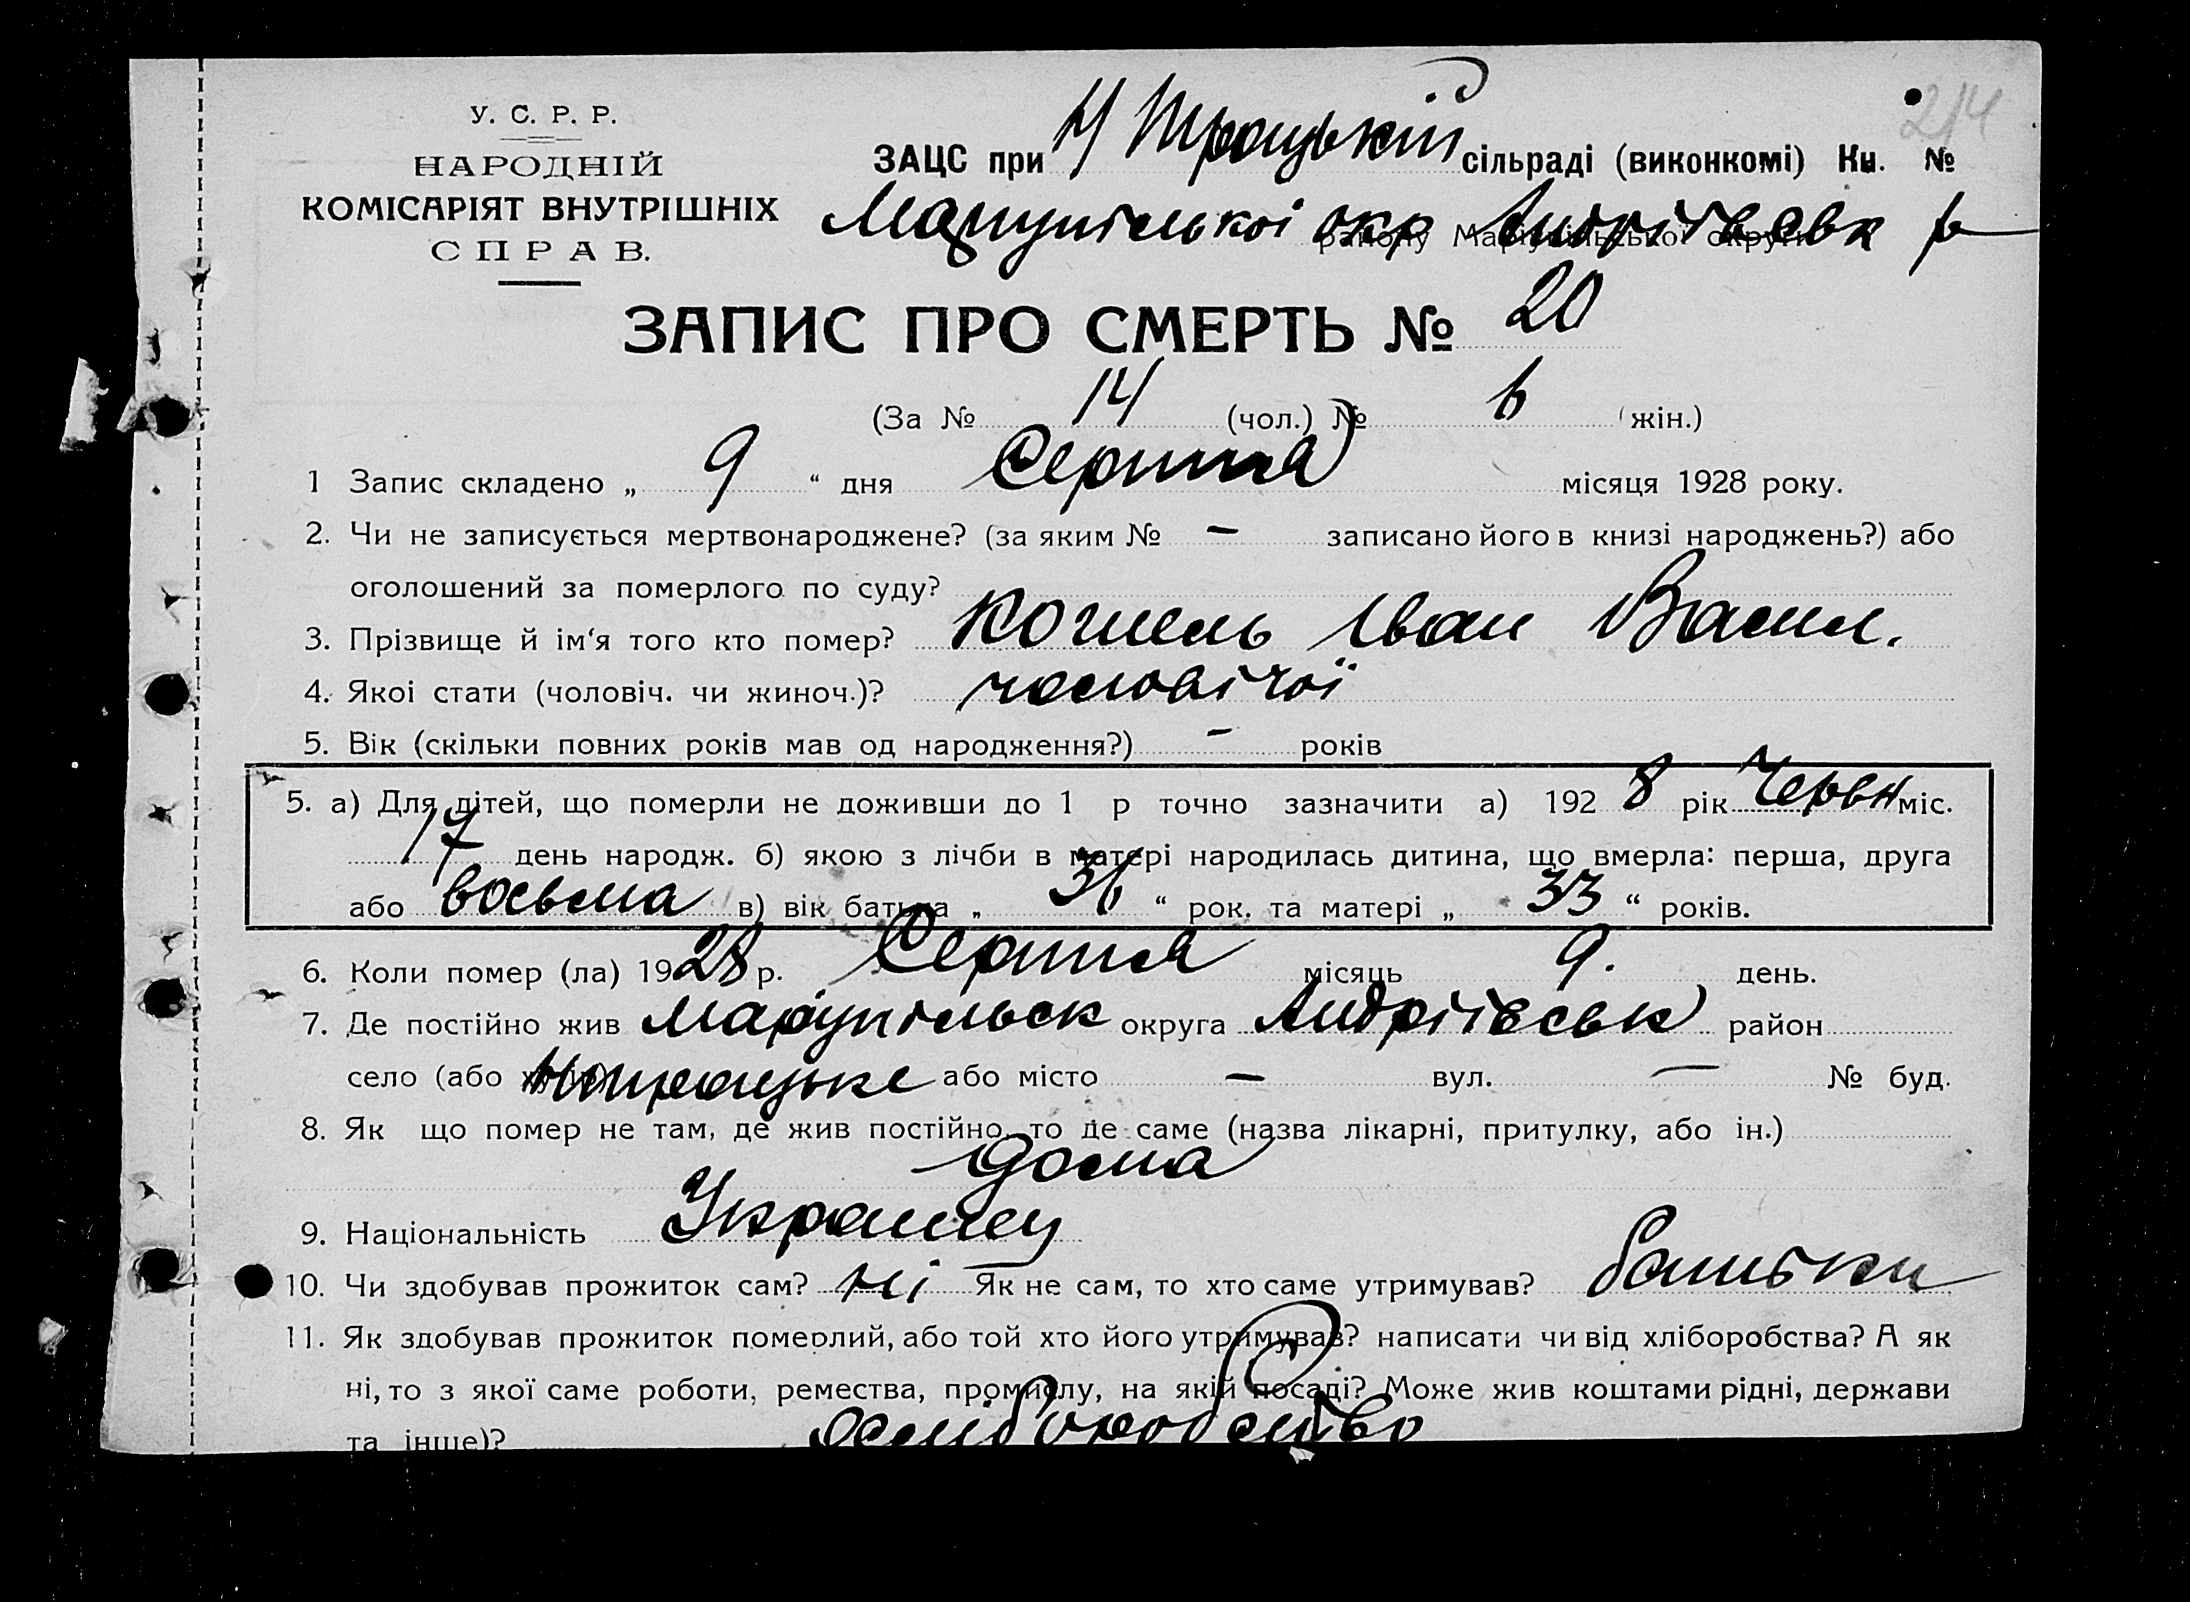 214
У. С. Р. Р.
НАРОДНІЙ
КОМІСАРІЯТ ВНУТРІШНІХ
СПРАВ.
ЗАЦС при Н Троцькій сільраді (виконкомі) Кн. №
Маріупільської окр Андріївськ р
району Маріупільської округи
ЗАПИС ПРО СМЕРТЬ № 20
(За № 14 (чол.) № 6 (жін.)
1 Запис складено „ 9 “ дня Серпня місяця 1928 року.
2. Чи не записується мертвонароджене? (за яким № – записано його в книзі народжень?) або
оголошений за померлого по суду?
3. Прізвище й ім‘я того хто помер? Кошель Іван Васил.
4. Якої стати (чоловіч. чи жиноч.)? чоловічої
5. Вік (скільки повних років мав од народження?) – років
5. а) Для дітей, що померли не доживши до 1 р точно зазначити а) 192 8 рік Червн міс.
17 день народж. б) якою з лічби в матері народилась дитина, що вмерла: перша, друга
або восьма в) вік батька „ 36 “ рок. та матері „ 33 “ років.
6. Коли помер (ла) 1928 р. Серпня місяць 9. день.
7. Де постійно жив Маріупільськ округа Андріївськ район
село (або Нтроцьке або місто – вул. — № буд.
8. Як що помер не там, де жив постійно, то де саме (назва лікарні, притулку, або ін.)
дома
9. Національність Українец
10. Чи здобував прожиток сам? Ні Як не сам, то хто саме утримував? батьки
11. Як здобував прожиток померлий, або той хто його утримував? написати чи від хліборобства? А як
ні, то з якої саме роботи, ремества, промислу, на якій посаді? Може жив коштами рідні, держави
та інше)? хліборобство